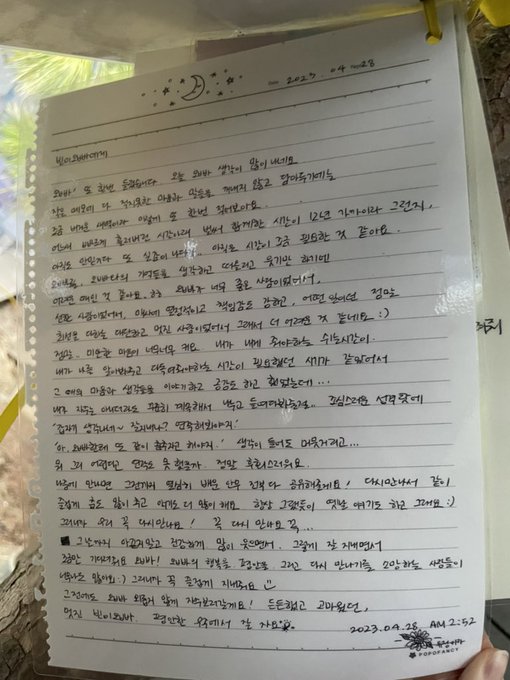 Date 2023. 04. 28
빈이오빠에게
오빠! 또 한번 들렀습니다. 오늘 오빠 생각이 많이 나네요
작은 메모에 다 적지못한 마음과 말들을 꺼내지 않고 담아두기에는
조금 버거운 새벽이라 이렇게 또 한번 적어보아요.
어느새 빠르게 흘러버린 시간아래 벌써 함께한 시간이 12년 가까이라 그런지,
아직도 안믿기다 또 실감이 나다가.. 아직은 시간이 조금 필요한 것 같아요.
오빠를, 오빠와의 기억들을 생각하고 떠올리고 웃기만 하기에
어려운 때인 것 같아요. 오빠가 너무 좋은 사람이었어서,
선한 사람이었어서, 매사에 열정적이고 책임감도 강하고, 어떤 일이던 정말
최선을 다하는 대단하고 멋진 사람이었어서 그래서 더 어려운 것 같네요 :)
정말.. 미안한 마음이 너무너무 커요. 내가 내게 줘야하는 쉬는시간이.
내가 나를 알아봐주고 다독여줘야하는 시간이 필요했던 시기가 같았어서
그 때의 마음과 생각들을 이야기하고 공감도 하고 했었는데...
내가 자주는 아니더라도 꾸준히 계속해서 해주고 들여다봐줄걸.. 조심스러운 성격 탓에
'갑자기 생각나네~ 잘지내나? 연락해봐야지.'
'아. 오빠한테 또 같이 춤추자고 해야지.' 생각이 들어도 머뭇거리고...
뭐 그리 어렵다고 연락도 못 했을까. 정말 후회스러워요.
나중에 만나면 그간까지 열심히 배운 안무 전부 다 공유해줄게요! 다시만나서 같이
즐겁게 춤도 많이 추고 얘기도 더 많이 해요. 항상 그랬듯이 옛날 얘기도 하고 그래요 :)
그러니까 우리 꼭 다시만나요! 꼭 다시 만나요 꼭...
그날까지 아프지말고 건강하게 많이 웃으면서. 그렇게 잘 지내면서
조금만 기다려줘요 오빠! 오빠의 행복을 평안을 그리고 다시 만나기를 소망하는 사람들이
너무나도 많아요 :) 그러니까 꼭 즐겁게 지내줘요
그전에도 오빠 외롭지 않게 자주보러갈게요! 든든했고 고마웠던,
멋진 빈이오빠. 평안한 우주에서 잘 자요
2023.04.28 AM 2:52
POPOFANCY